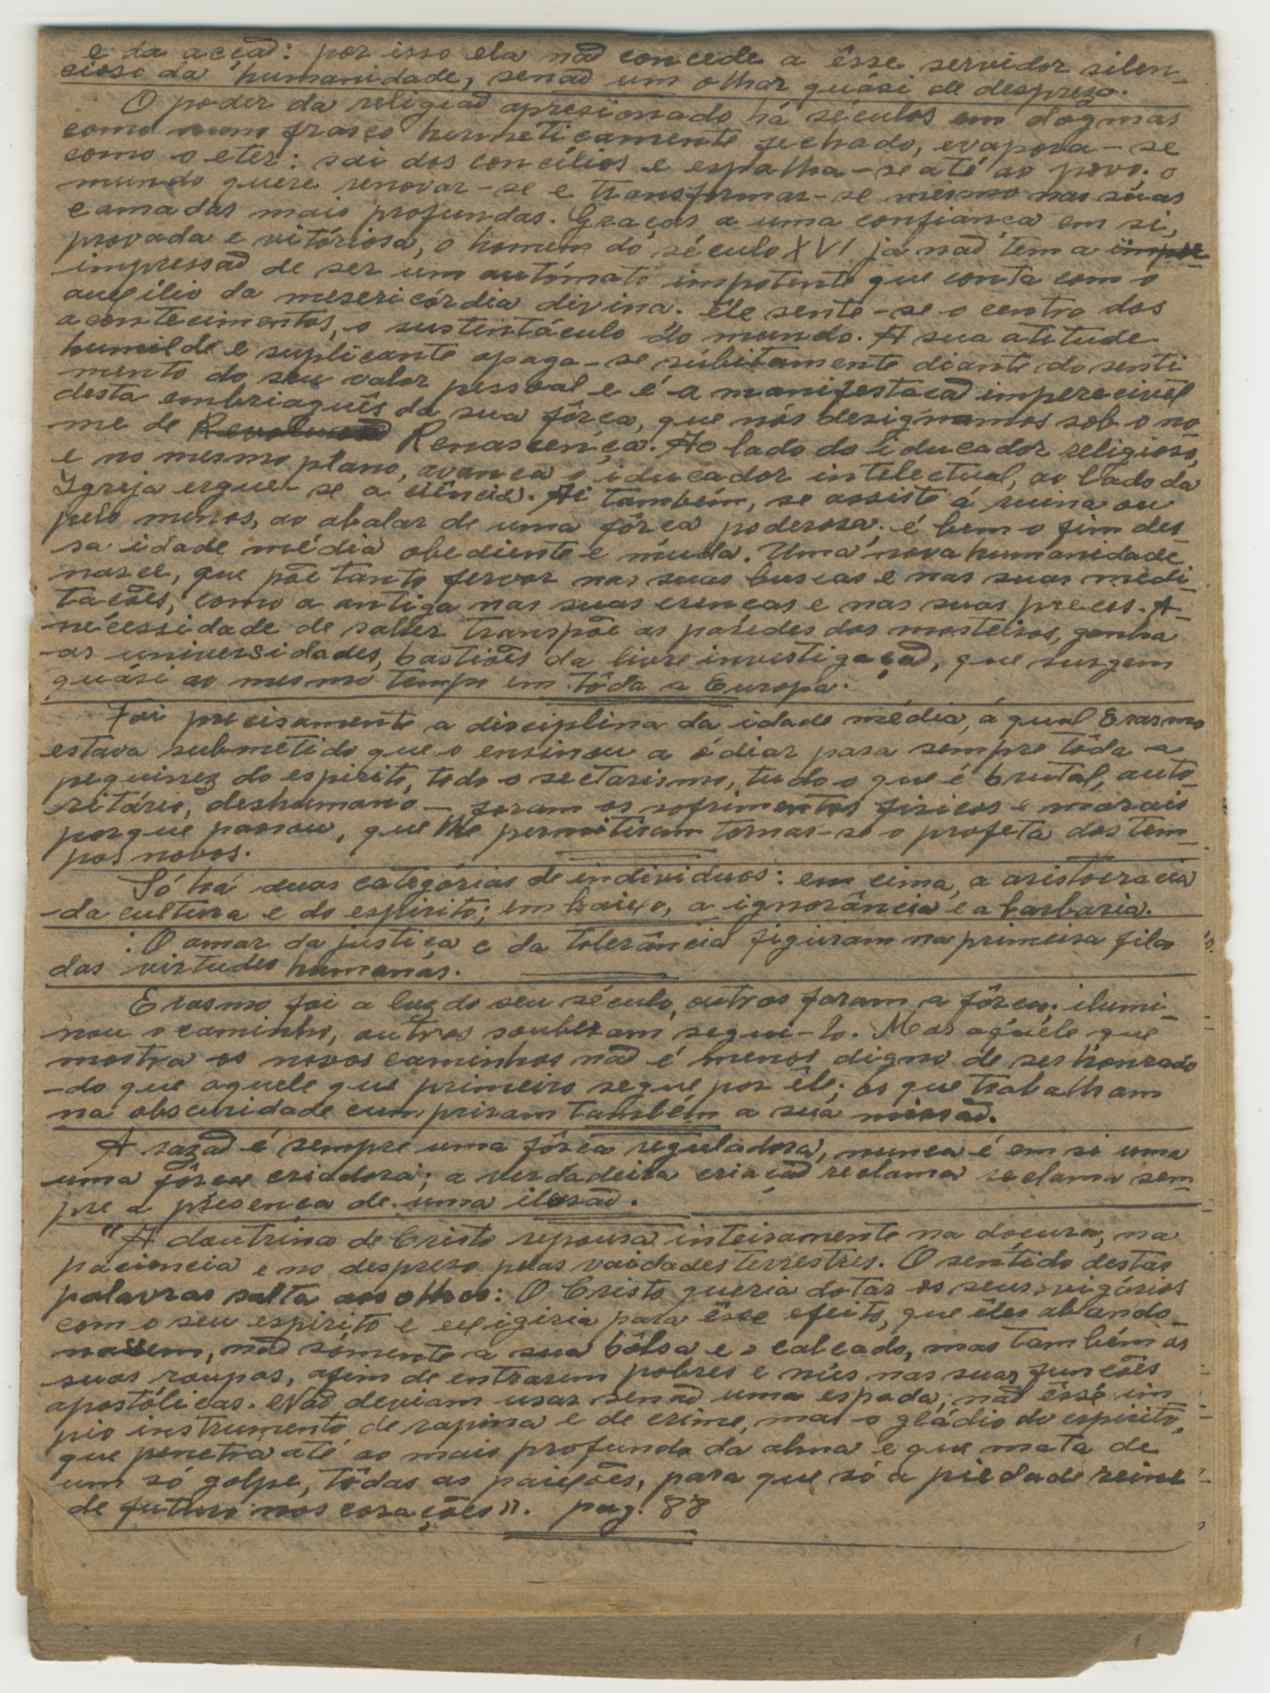 e da acção: por isso ela não concede a êsse servidor silen-
cioso da humanidade, senão um olhar quási de desprezo.
O poder da religião apresionado há séculos em dogmas
como num frasco hermeticamente fechado, evapora-se
como o eter: sai dos concílios e espalha-se até ao povo. O
mundo quere renovar-se e transformar-se mesmo nas súas
camadas mais profundas. Graças a uma confiança em si,
provada e vitóriosa, o homem do século XVI já não tem a impre-
impressão de ser um autómato impotente que conta com o
auxílio da mesericórdia divina. Ele sente-se o centro dos
acontecimentos, o sustentáculo do mundo. A sua atitude
humilde e suplicante apaga-se súbitamente diante do senti
mento do seu valor pessoal e é a manifestacão imperecivel
desta embriaguês da sua fôrça, que nós designamos sob o no
me de Revolucão Renascença. Ao lado do educador religioso,
e no mesmo plano, avança o educador intelectual, ao lado da
Igreja ergue-se a ciência. Aí também, se assiste á ruina ou
pelo menos, ao abalar de uma fôrça poderosa: é bem o fim des
sa idade média obediente e muda. Uma nova humanidade
nasce, que põe tanto fervor nas suas buscas e nas suas medi
tações, como a antiga nas suas crenças e nas suas preces. A
necessidade de saber transpõe as paredes dos mosteiros, ganha
as universidades, bastiões da livre investigação, que surgem
quási ao mesmo tempo em tôda a Europa.
Foi precisamente a disciplina da idade média, á qual Erasmo
estava submetido que o ensinou a ódiar para sempre tôda a
pequinez do espirito, todo o sectarismo, tudo o que é brutal, auto
ritário, deshumano - foram os sofrimentos fisicos e morais
porque passou, que lhe permitiram tornar-se o profeta dos tem-
pos novos.
Só há duas categórias de individuos: em cima, a aristocracia
da cultura e do espirito; em baixo, a ignorância e a barbaria.
: O amar da justiça e da tolerância figuram na primeira fila
das virtudes humanas.
Erasmo foi a luz do seu século, outros foram a fôrça; ilumi-
nou o caminho, outros souberam segui-lo. Mas aquele que
mostra os novos caminhos não é menos digno de ser honrado
do que aquele que primeiro segue por êle; os que trabalham
na obscuridade cumpriram também a sua missão.
A razão é sempre uma fôrça reguladora, nunca é em si uma
uma fôrça criadora; a verdadeira criação reclama reclama sem-
pre a presença de uma ilusão.
"A doutrina de Cristo repousa inteiramente na doçura, na
paciencia e no despreso pelas vaidades terrestres. O sentido destas
palavras salta aos olhos: O Cristo queria dotar os seus vigários
com o seu espirito e exigiria para êsse efeito, que êles abando
nassem, não sómente a sua bôlsa e o calçado, mas também as
suas roupas, afim de entrarem pobres e nús nas suas funcões
apostólicas. Não deviam usar senão uma espada; não êsse im
pio instrumento de rapina e de crime, mas o gládio do espirito,
que penetra até ao mais profundo da alma e que mata de
um só golpe, tôdas as paixões, para que só a piedade reine
de futuro nos corações". pag. 88